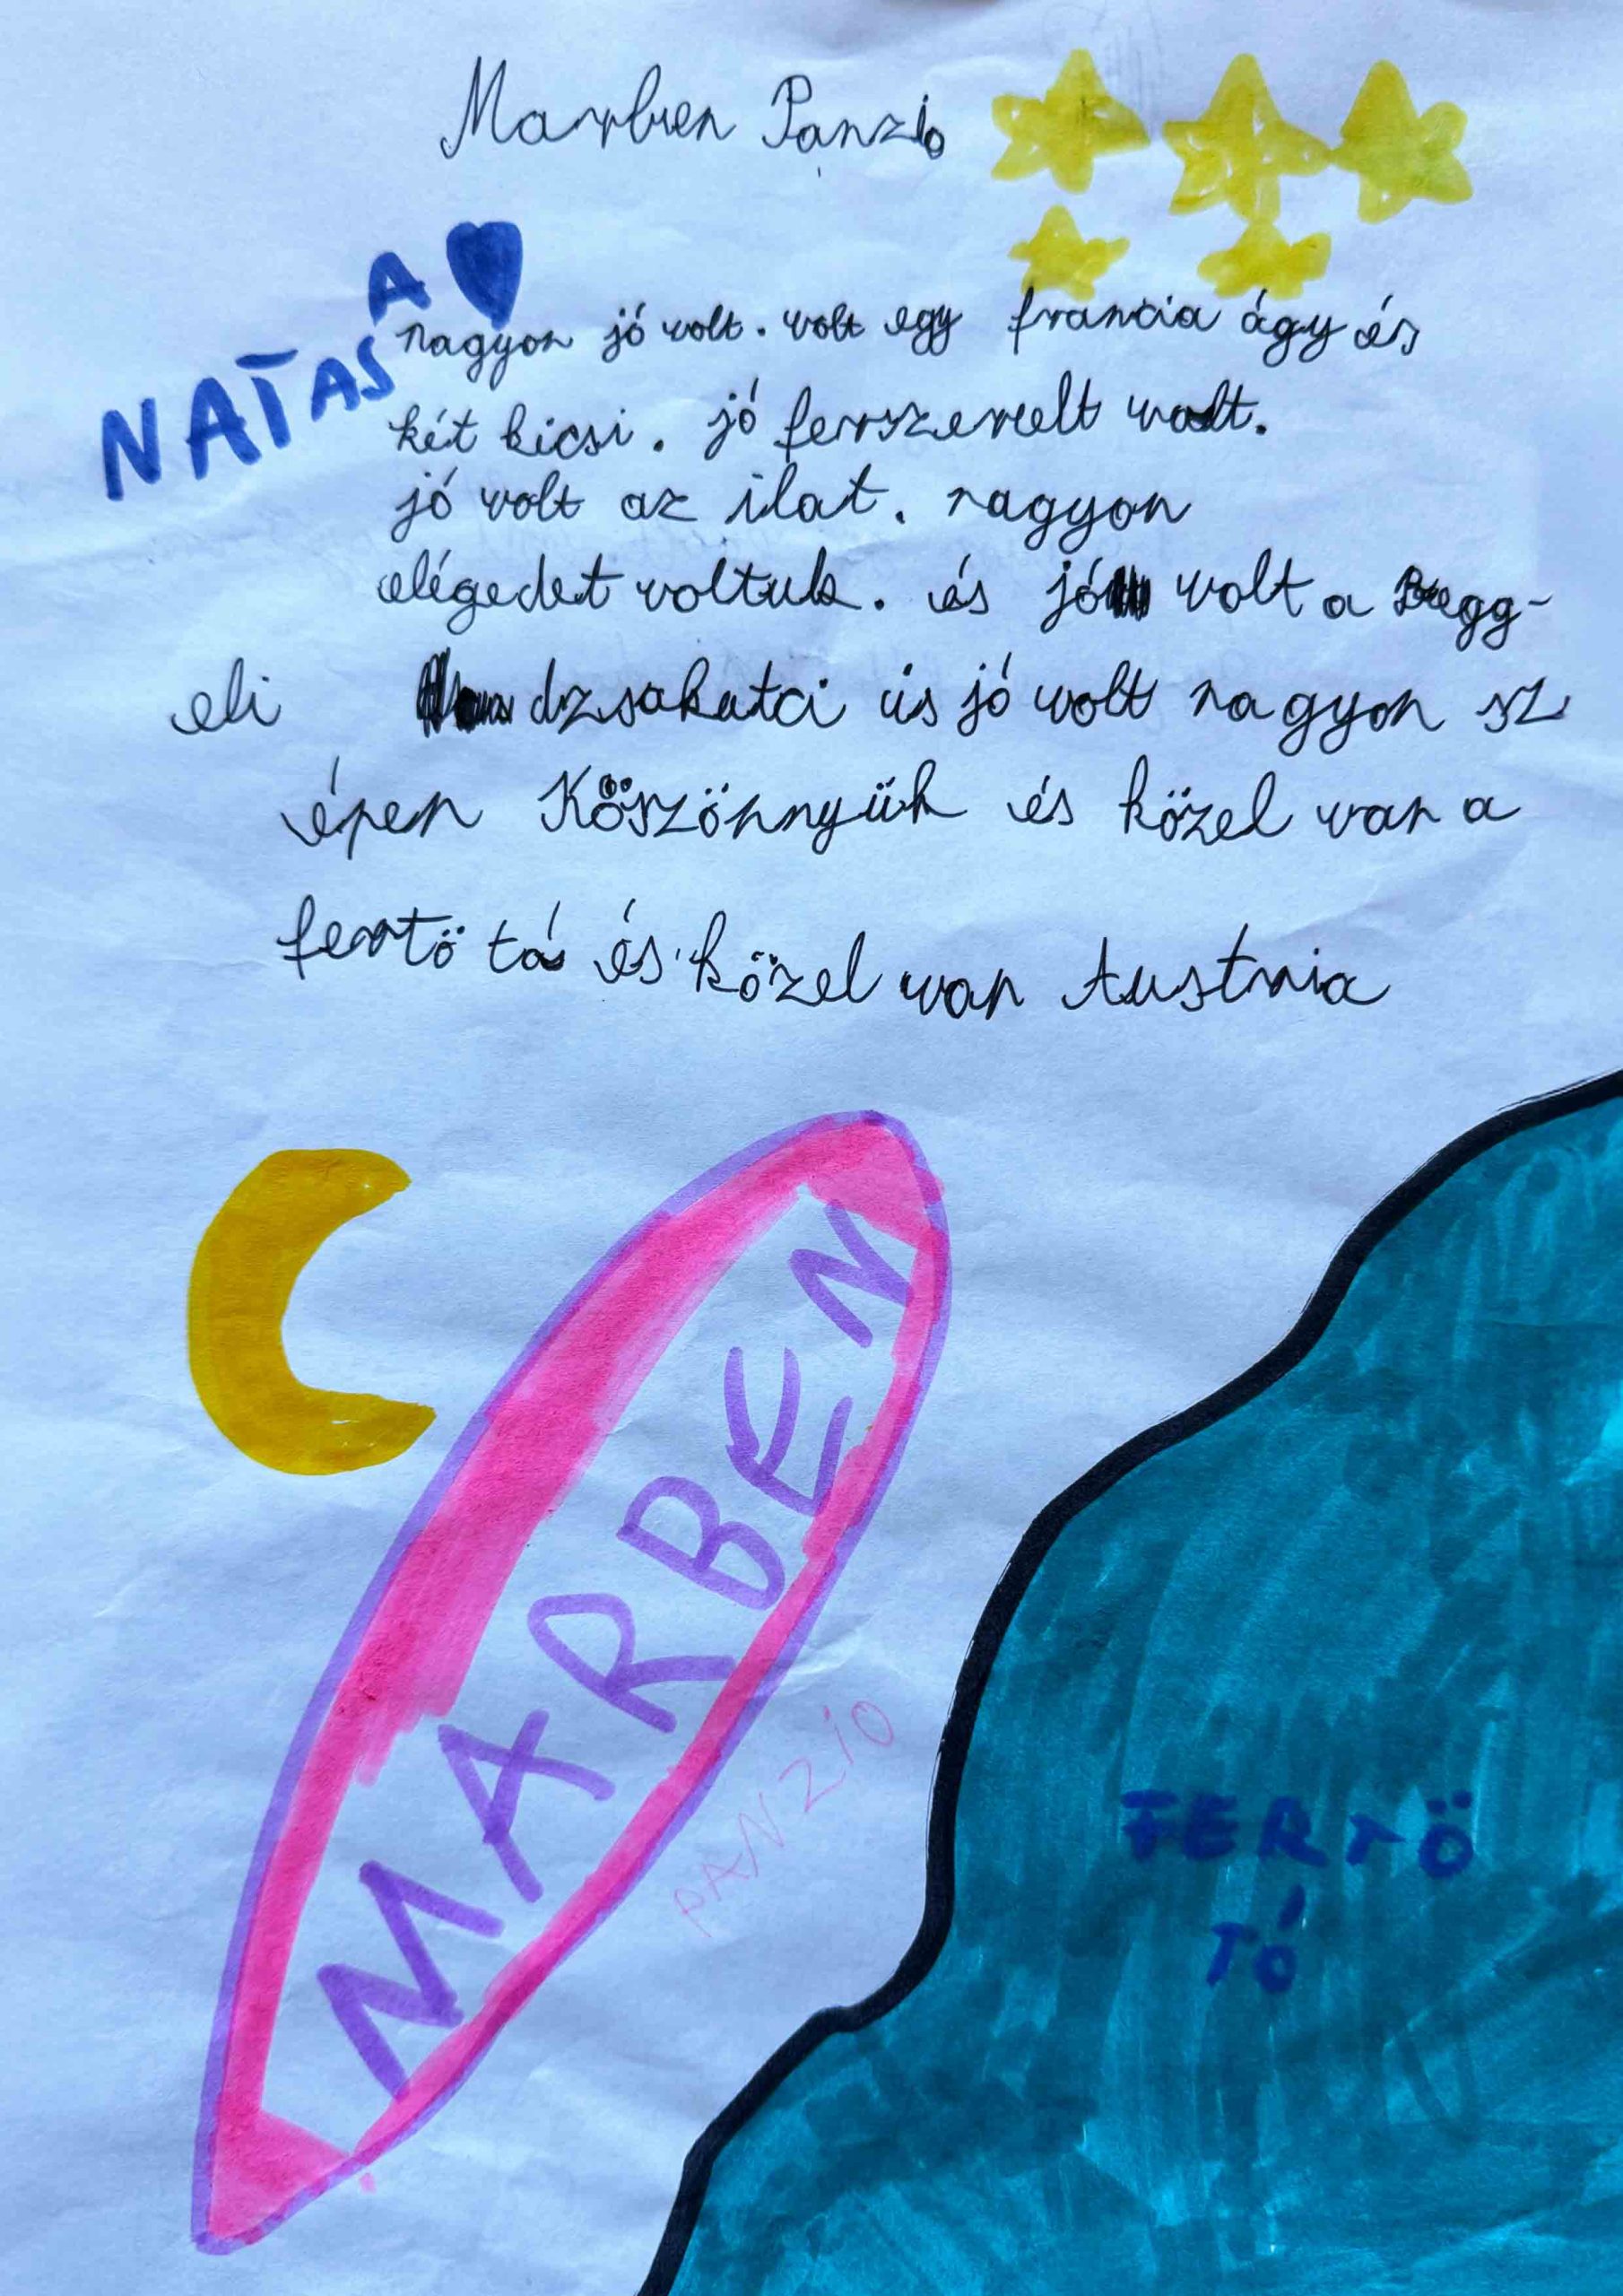 Marben Panzio
NATASA
nagyon jó volt. volt egy francia ágy és
két kicsi. jó fersszerelt volt.
jó volt az ilat. nagyon
elégedet voltuk. és jó volt a Regg-
eli dzsakutci is jó volt nagyon sz
épen Köszönnyük és közel van a
fertö tó és közel van Austria
MARBEN
PANZIO
FERTÖ
TÓ